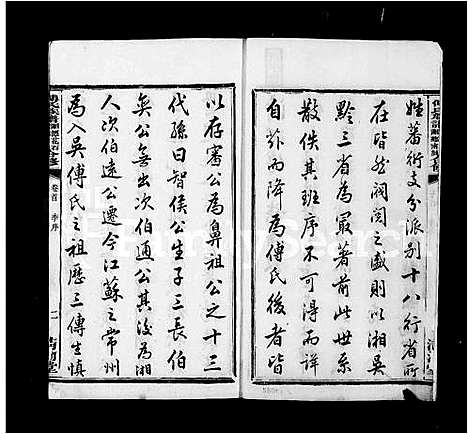 姓蕃衍支分派别十八行省所
在皆然阀阅之盛則以湘吳
黔三省為最著前此世系
散佚其班序不可得而详
自芥而降為傅氏後者皆
以存審公為鼻祖公之十三
代孫曰智侯公生子三長伯
奐公無出次伯通公其後為湘
人次伯遠公遷今江蘇之常州
為入吳傅氏之祖歷三傳生慎
卷首 李序
二
FamilySearch